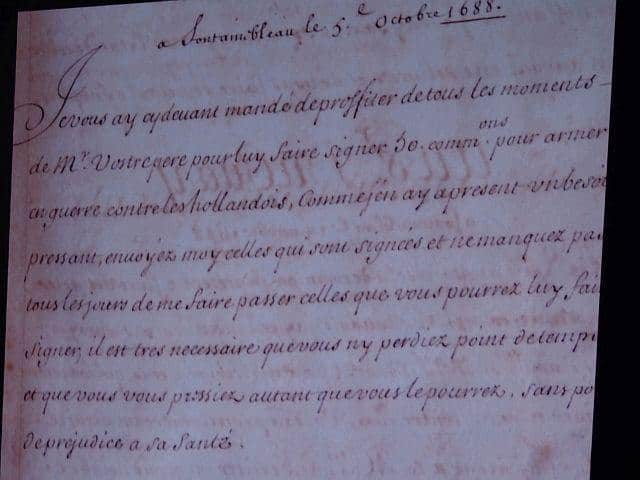 a fontainibleau le 5.e Octobre 1688.
Je vous ay cydevant mandé de proffiter de tous les moments
de Mr. Vostre pere pour luy faire signer 50. comm.ons pour armer
en guerre contre les hollandois, Comme j'en ay apresent vn besoi
pressant, envoyéz moy celles qui sont signéés et ne manquez pas
tous les jours de me faire passer celles que vous pourrez luy fai
signer, il est tres necessaire que vous n'y perdiez point de temps
et que vous vous pressiez autant que vous le pourrez, sans po
de prejudice a sa santé.